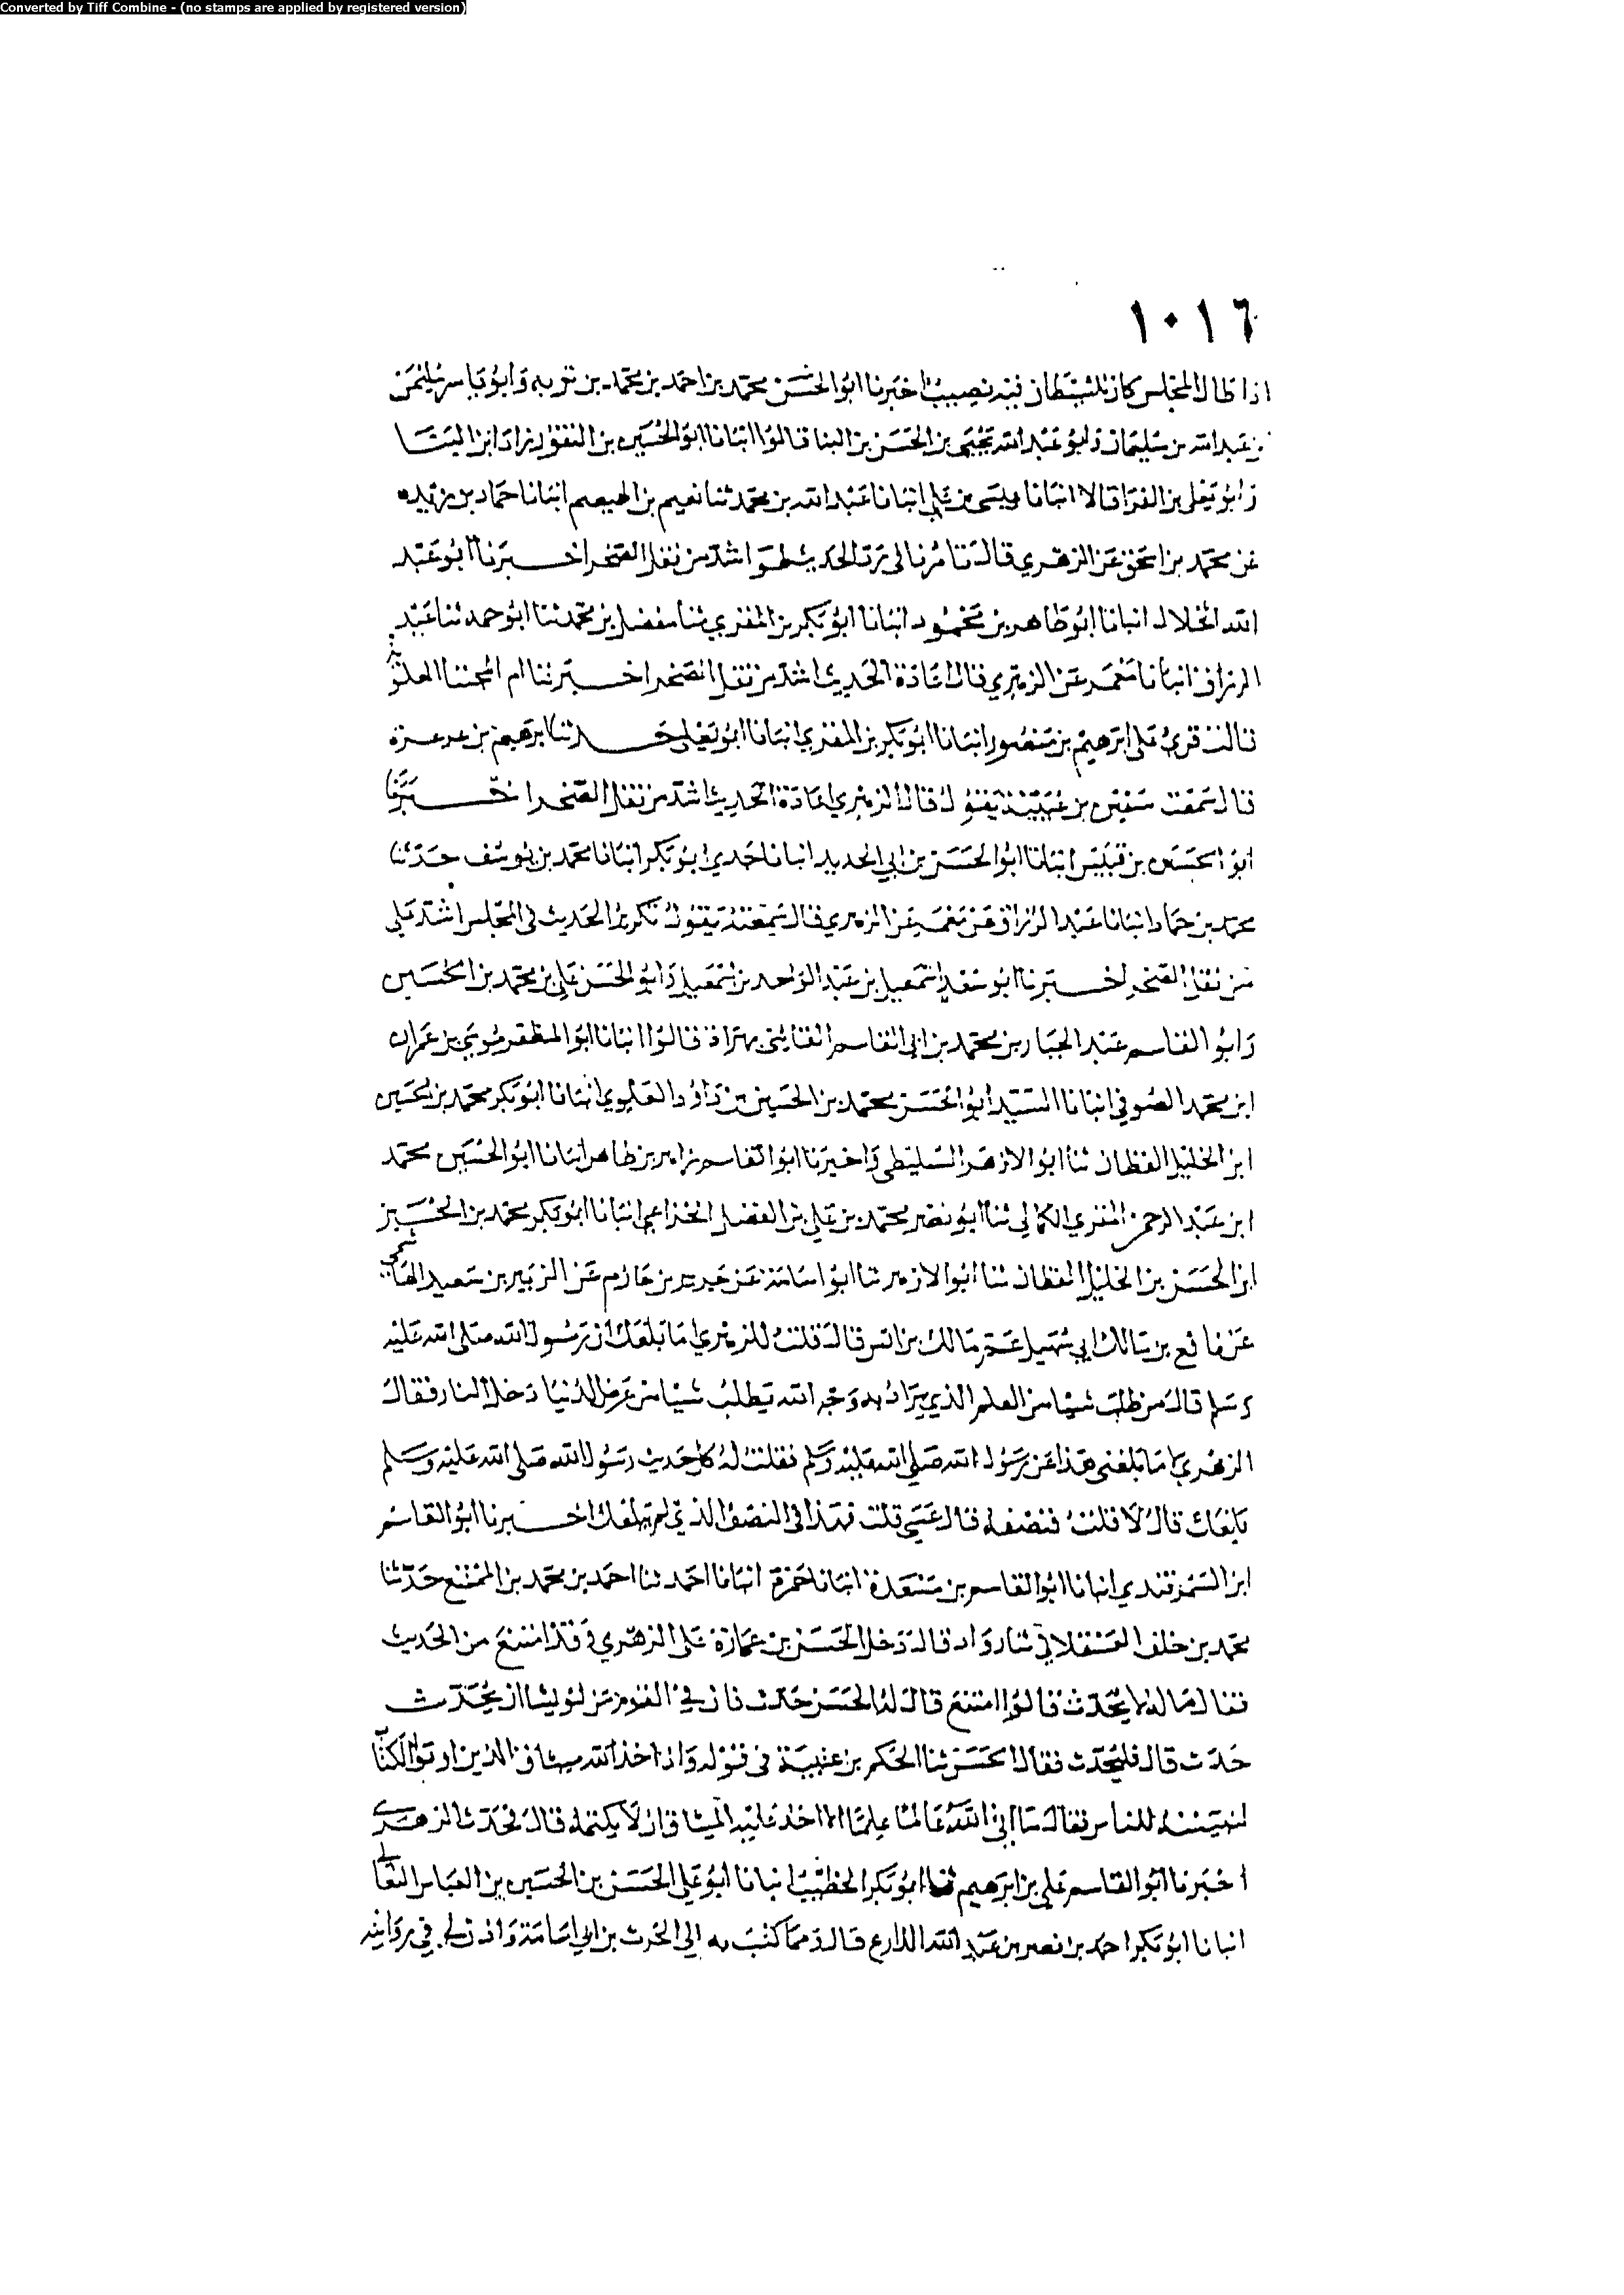 Converted by Tiff Combine - (no stamps are applied by registered version)
١٠١٦
اذا طال المجلس كان للشيطان فيه نصيب اخبرنا ابو الحسن محمد بن احمد بن محمد بن توبه وابو ياسر سليمن
بن عبد الله بن سليمان وابو عبد الله يحيى بن الحسن بن البنا قالوا انبانا ابو الحسين بن النقور زاد ابن البنا
وابو يعلى بن الفرا قالا انبانا عيسى بن علي انبانا عبد الله بن محمد ثنا نعيم بن الهيصم انبانا حماد بن زيد
عن محمد بن اسحق عن الزهري قال الحديث اشد من نقل الصخر اخبرنا ابو عبد
الله الخلال انبانا ابو طاهر بن محمود انبانا ابو بكر بن المقري ثنا مفضل بن محمد ثنا ابو حمه ثنا عبد
الرزاق انبانا معمر عن الزهري قال اعادة الحديث اشد من نقل الصخر اخبرتنا ام المجتبا العلوية
قالت قرئ على ابرهيم بن منصور انبانا ابو بكر بن المقري انبانا ابو يعلى حدثنا ابرهيم بن عرعرة
قال سمعت سفين بن عيينة يقول قال الزهري اعادة الحديث اشد من نقل الصخر اخبرنا
ابو الحسن بن قبيس انبانا ابو الحسن بن ابي الحديد انبانا جدي ابو بكر انبانا محمد بن يوسف حدثنا
محمد بن حماد انبانا عبد الرزاق عن معمر عن الزهري قال سمعته يقول تكرير الحديث في المجلس اشد علي
من نقل الصخر اخبرنا ابو سعد اسمعيل بن عبد الواحد بن اسمعيل وابو الحسن علي بن محمد بن الحسين
وابو القاسم عبد الجبار بن محمد بن ابي القاسم القايني بهراة قالوا انبانا ابو المظفر موسى بن عمران
ابن محمد الصوفي انبانا السيد ابو الحسن محمد بن الحسين بن داود العلوي انبانا ابو بكر محمد بن الحسين
ابن الخليل القطان ثنا ابو الازهر السليطي واخبرنا ابو القاسم زاهر بن طاهر انبانا ابو الحسين محمد
ابن عبد الرحمن المقري الكمالي ثنا ابو نصر محمد بن علي بن الفضل الخزاعي انبانا ابو بكر محمد بن الحسين
ابن الحسن بن الخليل القطان ثنا ابو الازهر ثنا ابو اسامة عن جرير بن حازم عن الزبير بن سعيد الهاشمي
عن نافع بن مالك ابي سهيل عم مالك بن انس قال قلت للزهري اما بلغك ان رسول الله صلى الله عليه
وسلم قال من طلب شيا من العلم الذي يراد به وجه الله يطلب شيا من عرض الدنيا دخل النار فقال
الزهري لا ما بلغني هذا عن رسول الله صلى الله عليه وسلم فقلت له كل حديث رسول الله صلى الله عليه وسلم
بلغك قال لا قلت فنصفه قال عسى قلت فهذا في النصف الذي لم يبلغك اخبرنا ابو القاسم
ابن السمرقندي انبانا ابو القاسم بن مسعدة انبانا حمزة انبانا احمد ثنا احمد بن محمد بن الممتنع حدثنا
محمد بن خلف العسقلاني ثنا رواد قال دخل الحسن بن عمارة على الزهري وقد امتنع من الحديث
فقال ما له لا يحدث قالوا امتنع قال له الحسن حدث فان في القوم من لو يشا ان يحدث
حدث قال فليحدث فقال الحسن ثنا الحكم بن عتيبة في قوله واذ اخذ الله ميثاق الذين اوتوا الكتاب
لتبيننه للناس فقال ما اتى الله عالما علما الا اخذ عليه الميثاق ان لا يكتمه قال فحدث الزهري
اخبرنا ابو القاسم علي بن ابرهيم ثنا ابو بكر الخطيب انبانا ابو علي الحسن بن الحسين بن العباس النعالي
انبانا ابو بكر احمد بن نصر بن عبد الله الذارع قال مما كتب به الي الحرث بن ابي اسامة واذن لي في روايته